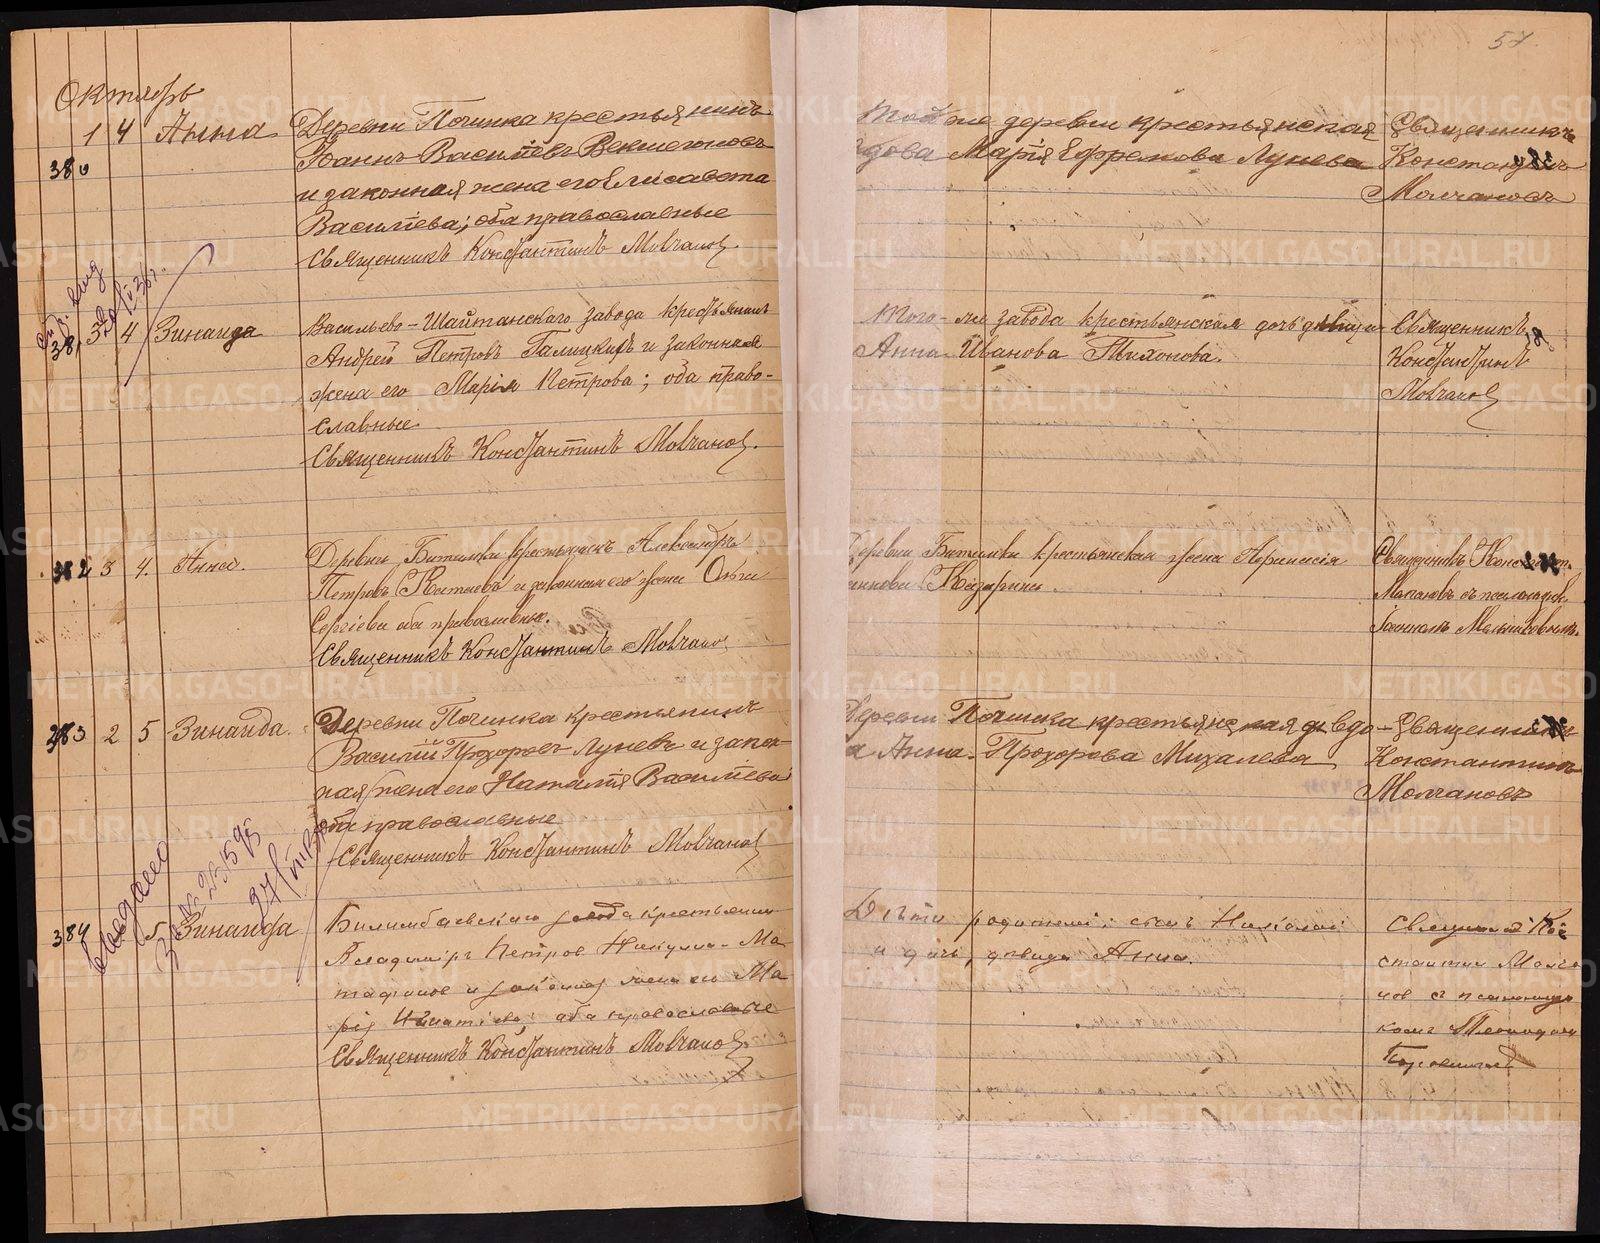 57.
Октябрь
1 4 Анна
380
Деревни Починка крестьянинъ
Іоаннъ Василіевъ
и законная жена его Елисавета
Василіева; оба православные
Священникъ Константинъ Молчановъ.
Той же деревни крестьянская
вдова Марія Ефремова Лунева
Священникъ
Константинъ
Молчановъ
381 3 4 Зинаида
Васильево-Шайтанскаго завода крестьянинъ
Андрей Петровъ Галицкихъ и законная
жена его Марія Петрова; оба право-
славные.
Священникъ Константинъ Молчановъ.
Того-же завода крестьянская дочь девица
Анна Иванова Тихонова.
Священникъ
Константинъ
Молчановъ
382 3 4. Анна.
Деревни Битимки крестьянинъ Александръ
Петровъ и законная его жена Ольга
Сергіева оба православные.
Священникъ Константинъ Молчановъ
Деревни Битимки крестьянская жена
Священникъ Констант.
Молчановъ съ псаломщик.
Іоанномъ Мельниковымъ.
383 2 5 Зинаида.
Деревни Починка крестьянинъ
Василій Прохоровъ Луневъ и закон-
ная жена его Наталія Василіева
оба православные
Священникъ Константинъ Молчановъ
Деревни Починка крестьянская вдо-
ва Анна Прохорова Михалева
Священникъ
Константинъ
Молчановъ
Выдано
384 5 Зинаида
Билимбаевскаго завода крестьянин
Владиміръ Петров Никулин-Ма
и законная жена его Ма
рія Игнатіева; оба православные
Священникъ Константинъ Молчановъ
Дѣти родителей: сынъ Николай
и дочь, девица Анна.
Священник Кон
стантин Молча
нов с псаломщи
ком
METRIKI.GASO-URAL.RU